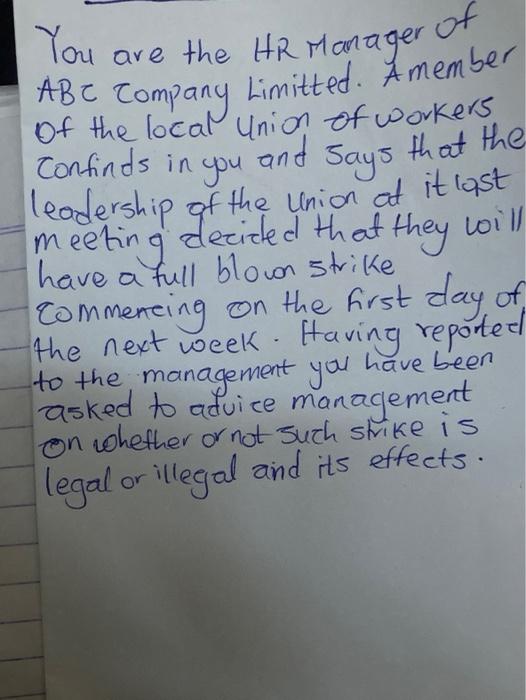 You are the HR Manager of
ABC Company Limitted. A member
Of the local Union of workers
Confinds in you and Says that the
leadership of the Union at it last
meeting decided that they will
have a full blown strike
Commencing on the first day of
the next week. Having reported
to the management you have been
asked to advice management
on whether or not Such strike is
legal or illegal and its effects.